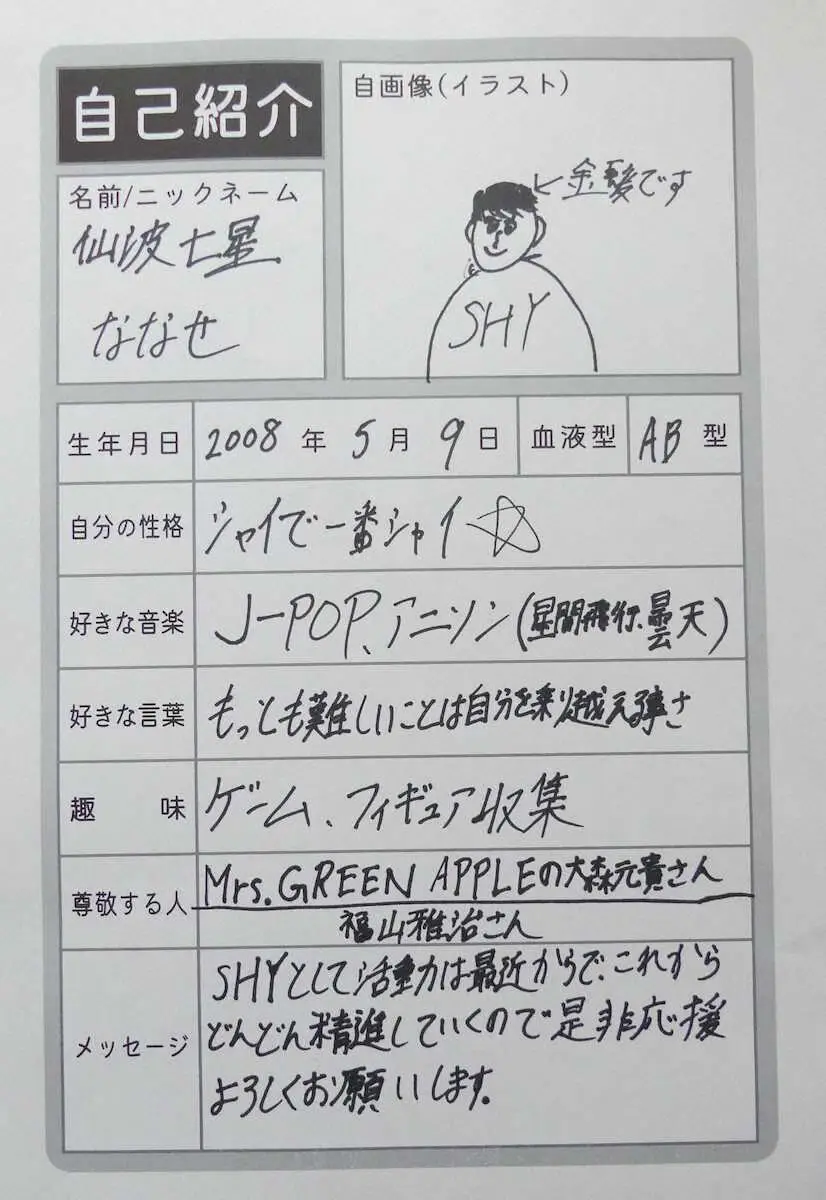 自己紹介
自画像(イラスト)
←金髪です
SHY
名前/ニックネーム
仙波七星
ななせ
生年月日 2008年5月9日 血液型 AB型
自分の性格 シャイで一番シャイ☆
好きな音楽 J-POP、アニソン(星間飛行、曇天)
好きな言葉 もっとも難しいことは自分を乗り越える事さ
趣味 ゲーム、フィギュア収集
尊敬する人 Mrs.GREEN APPLEの大森元貴さん
福山雅治さん
メッセージ
SHYとして活動は最近からで、これから
どんどん精進していくので是非応援
よろしくお願いします。